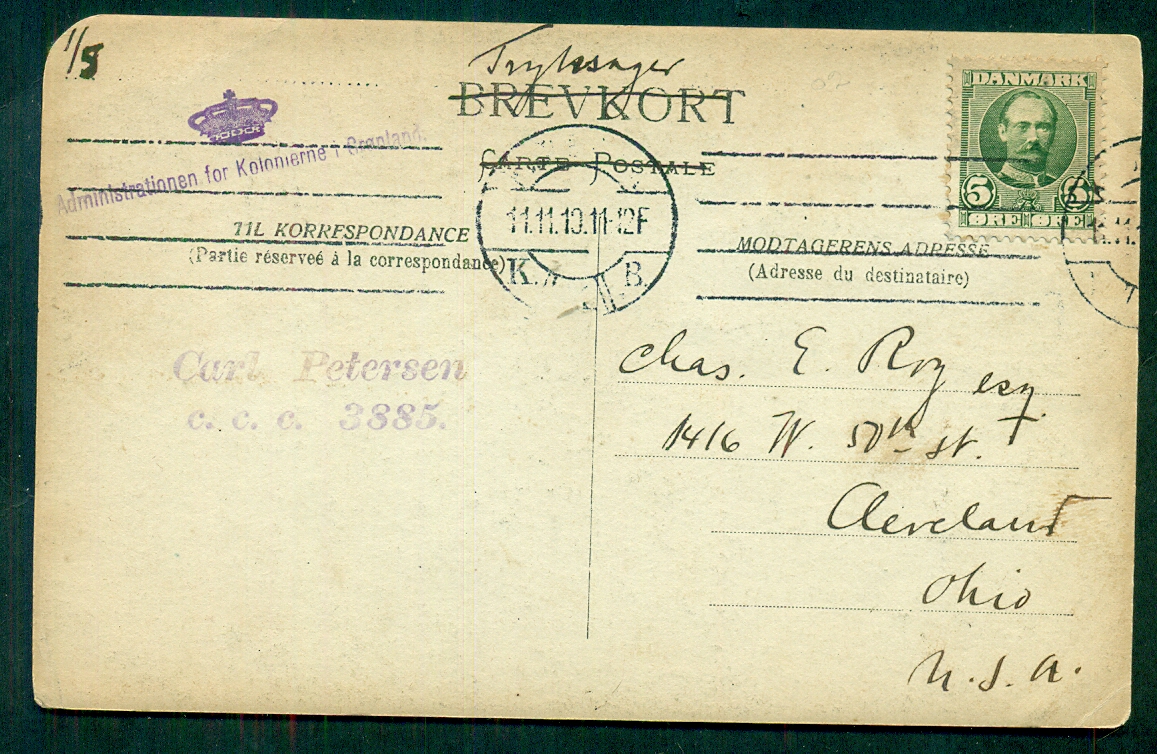 1/5
Tryksager
BREVKORT
CARTE POSTALE
DANMARK
5 5
ØRE ØRE
Administrationen for Kolonierne i Grønland.
11.11.10.11-12F
K. B.
TIL KORRESPONDANCE
(Partie réserveé à la correspondance)
MODTAGERENS ADRESSE
(Adresse du destinataire)
Carl Petersen
c. c. c. 3885.
Chas. E. Roy esq.
1416 W. 50th St.
Cleveland
Ohio
U.S.A.